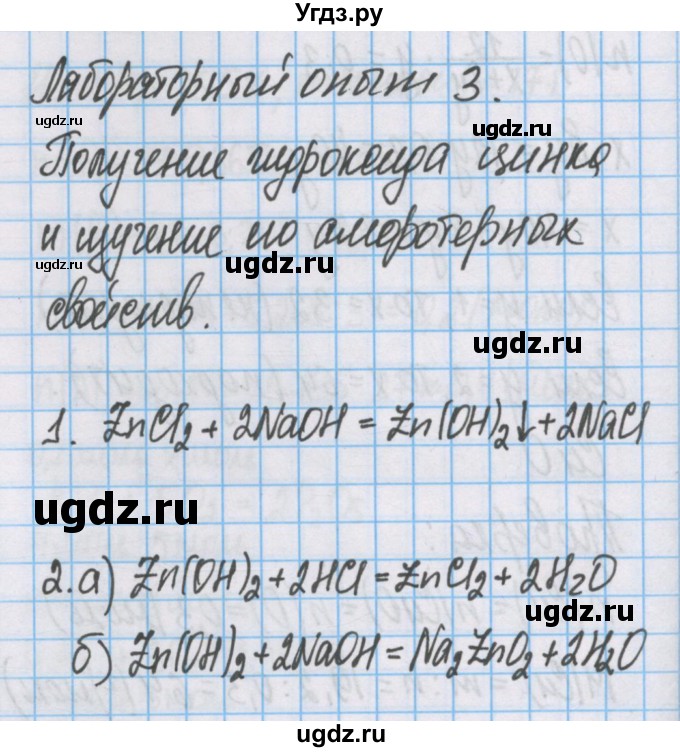 Угдз.ру
Лабораторный опыт 3.
ugdz.ru ugdz.ru
Получение гидроксида цинка
и изучение его амфотерных
ugdz.ru ugdz.ru
свойств.
ugdz.ru
1. ZnCl₂ + 2NaOH = Zn(OH)₂↓ + 2NaCl
ugdz.ru
2. а) Zn(OH)₂ + 2HCl = ZnCl₂ + 2H₂O
ugdz.ru
б) Zn(OH)₂ + 2NaOH = Na₂ZnO₂ + 2H₂O
ugdz.ru ugdz.ru
Угдз.ру